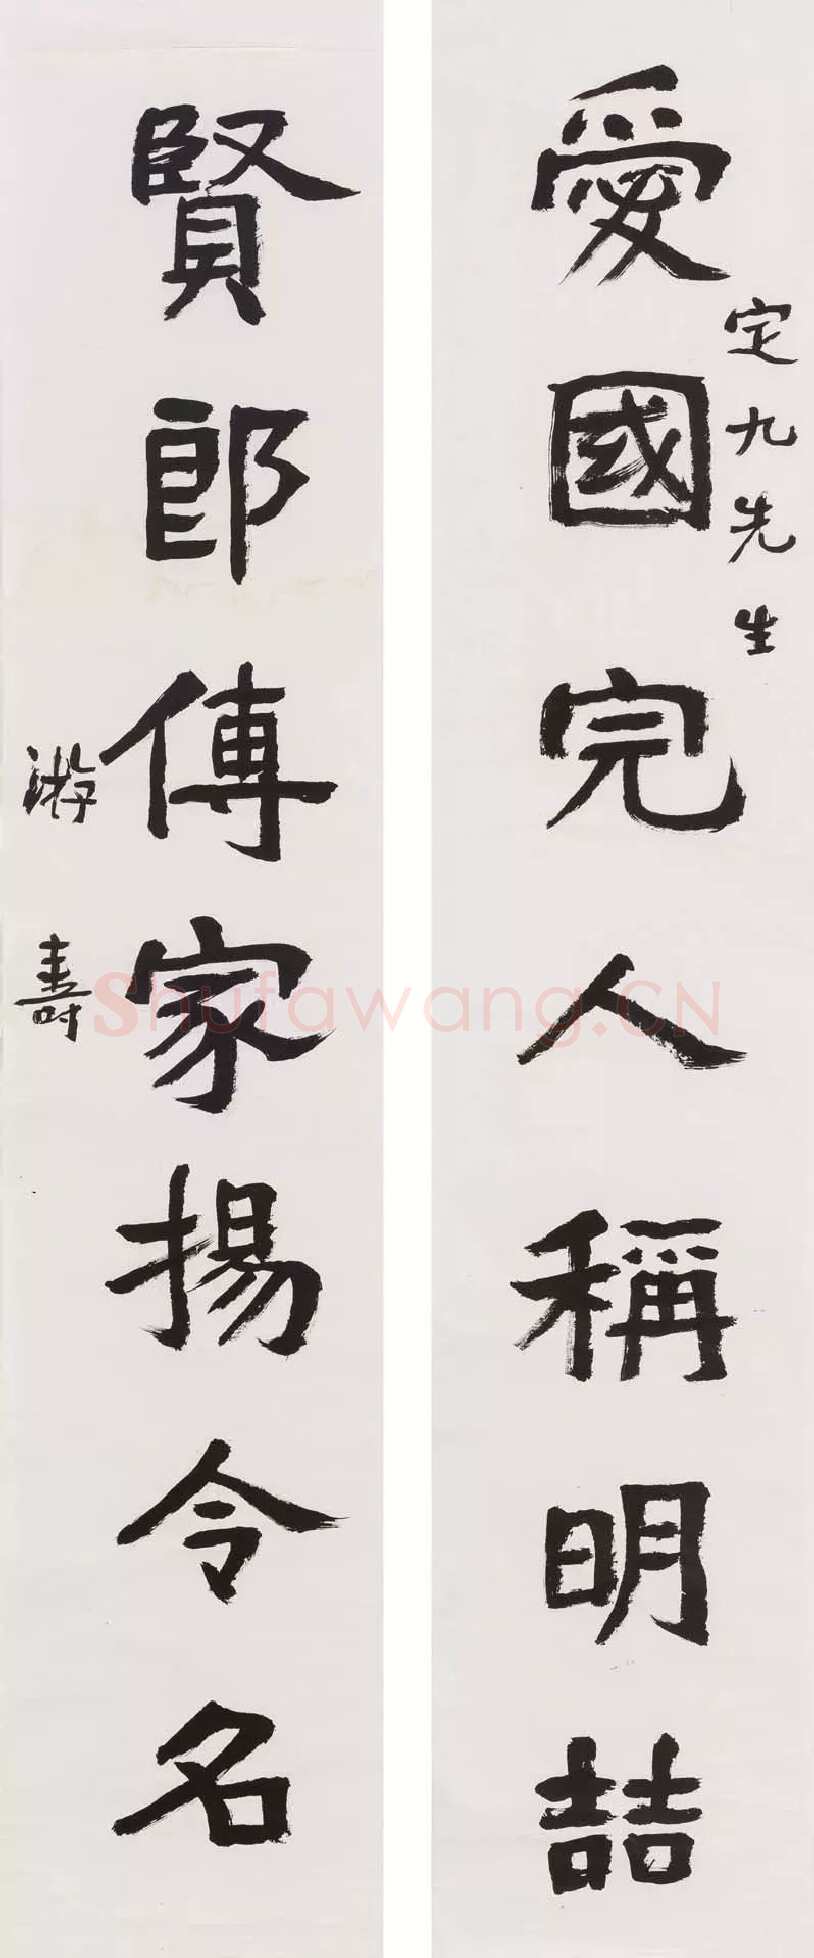 定九先生
愛國完人稱明喆
賢郎傳家揚令名
游壽
Shufawang.CN